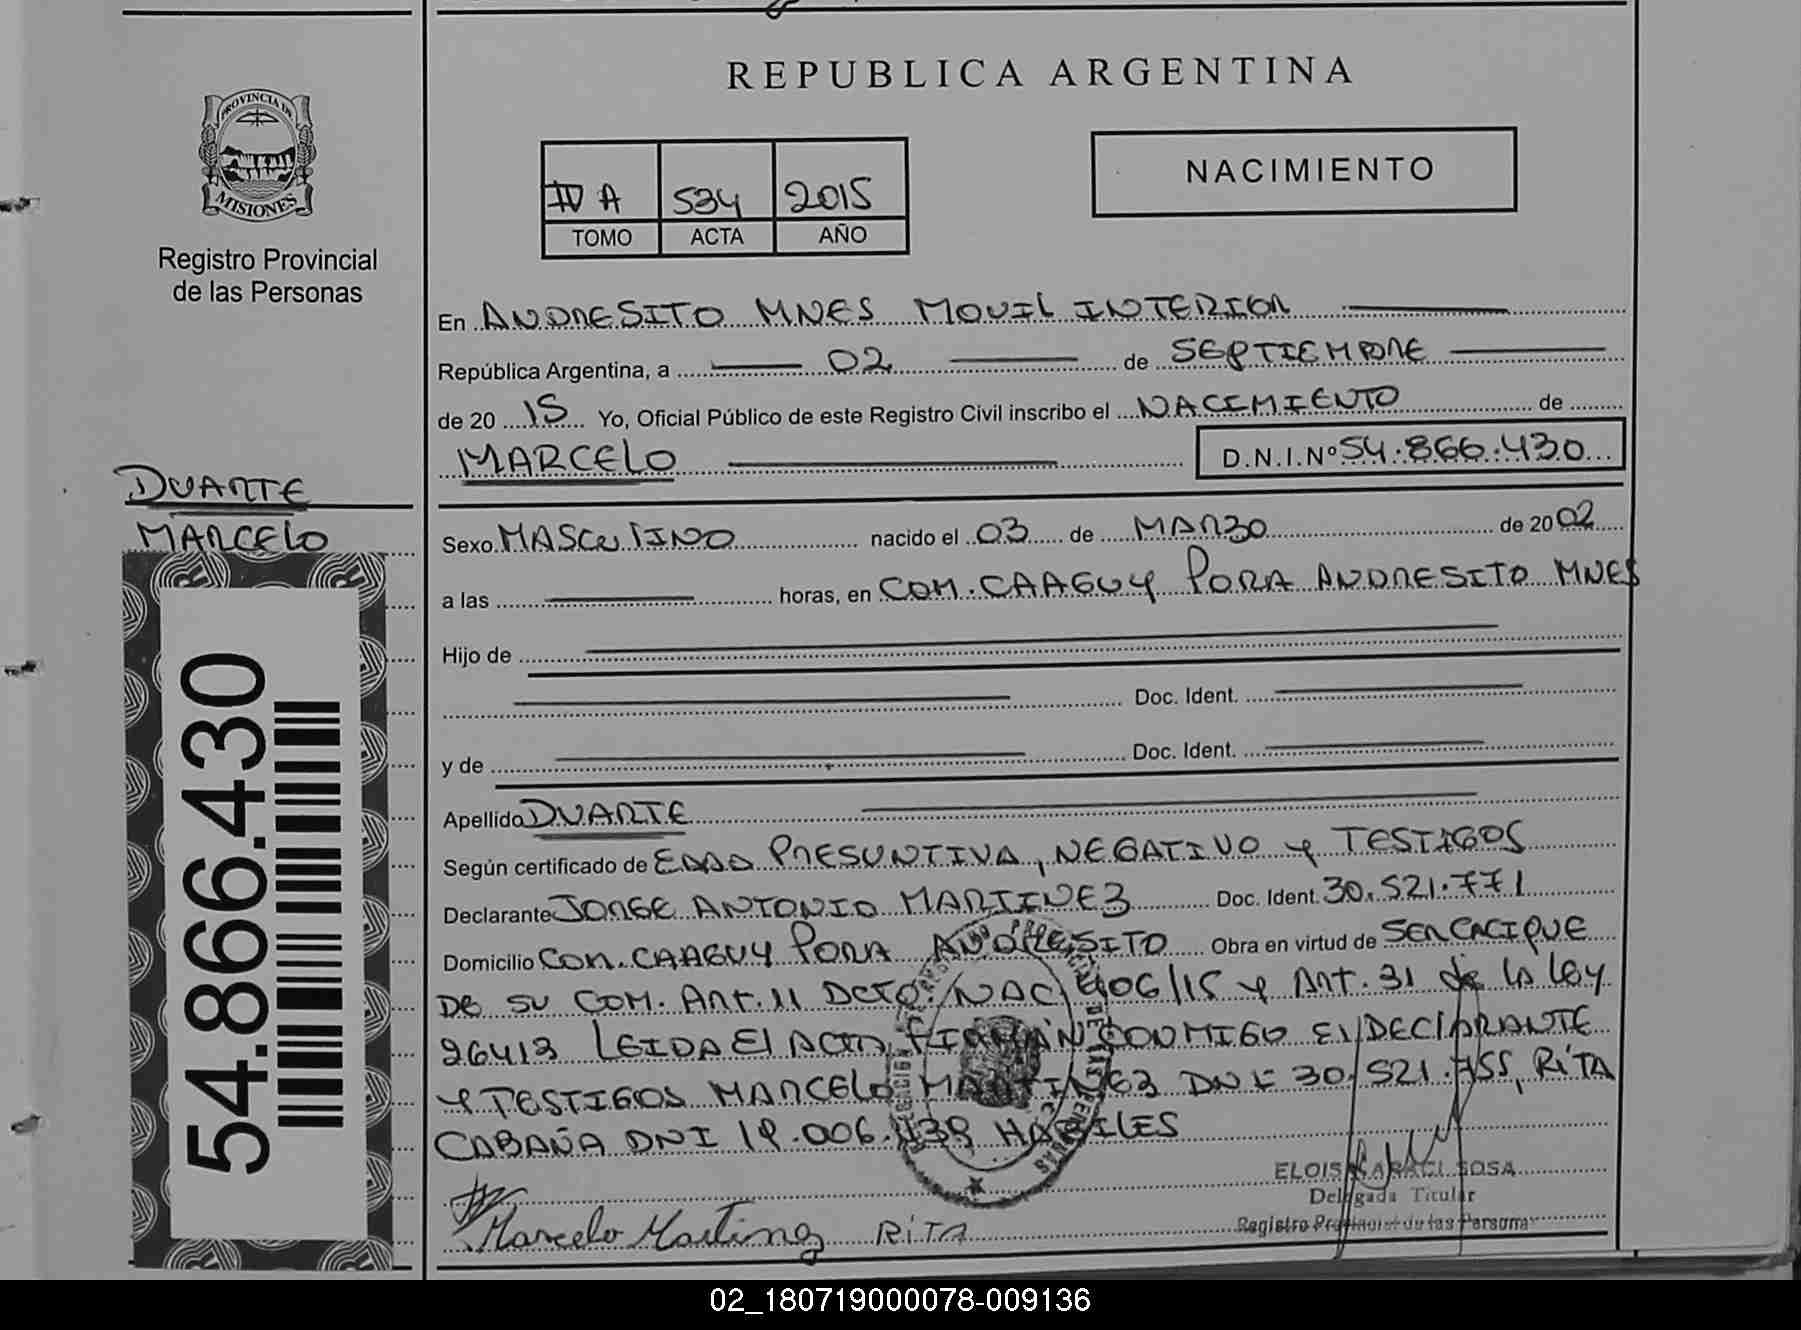 REPUBLICA ARGENTINA
PROVINCIA DE
MISIONES
Registro Provincial
de las Personas
NACIMIENTO
IV A 534 2015
TOMO ACTA AÑO
En ANDRESITO MNES MOVIL INTERIOR
República Argentina, a 02 de SEPTIEMBRE
de 20 15 Yo, Oficial Público de este Registro Civil inscribo el NACIMIENTO de
MARCELO D.N.I.Nº 54.866.430
DUARTE
MARCELO
54.866.430
Sexo MASCULINO nacido el 03 de MARZO de 20 02
a las horas, en COM. CAAGUY PORA ANDRESITO MNES
Hijo de
Doc. Ident.
y de Doc. Ident.
Apellido DUARTE
Según certificado de EDAD PRESUNTIVA, NEGATIVO y TESTIGOS
Declarante JORGE ANTONIO MARTINEZ Doc. Ident. 30.521.771
Domicilio COM. CAAGUY PORA ANDRESITO Obra en virtud de SER CACIQUE
DE SU COM. Art. 11 DCTO. NAC 406/15 y Art. 31 de la Ley
26413 LEIDA El ACTA, FIRMAN CONMIGO El DEClARANTE
y TESTIGOS MARCELO MARTINEZ DNI 30.521.755, RiTA
CABAÑA DNI 19.006.439 HABILES
ELOISA ARACI SOSA
Delegada Titular
Registro Provincial de las Personas
Marcelo Martinez RiTA
02_180719000078-009136